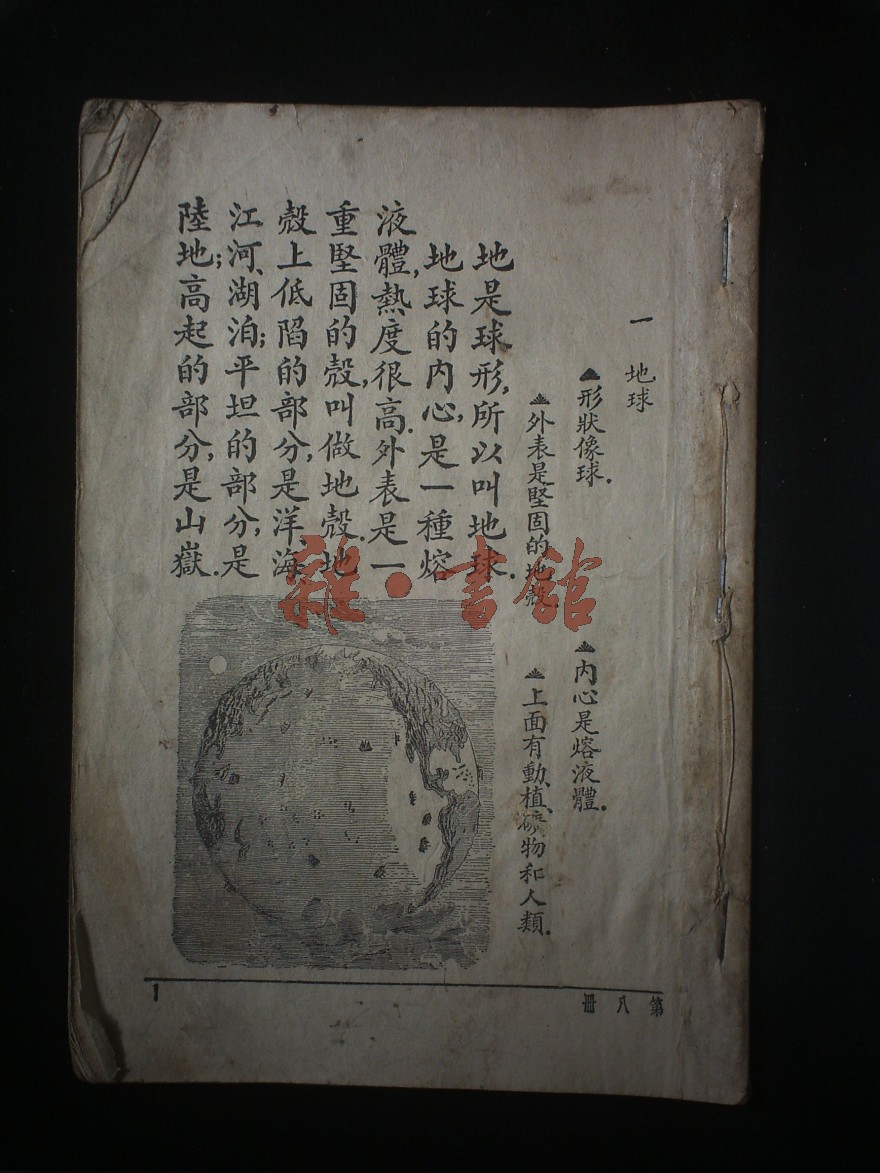 一　地球
▲形狀像球．
▲內心是熔液體．
▲外表是堅固的地殼．
▲上面有動、植、礦物和人類．
地是球形，所以叫地球．
地球的內心，是一種熔
液體，熱度很高．外表是一
重堅固的殼，叫做地殼．地
殼上低陷的部分，是洋、海、
江河、湖泊；平坦的部分，是
陸地；高起的部分，是山嶽．
雜·書館
第八冊
1